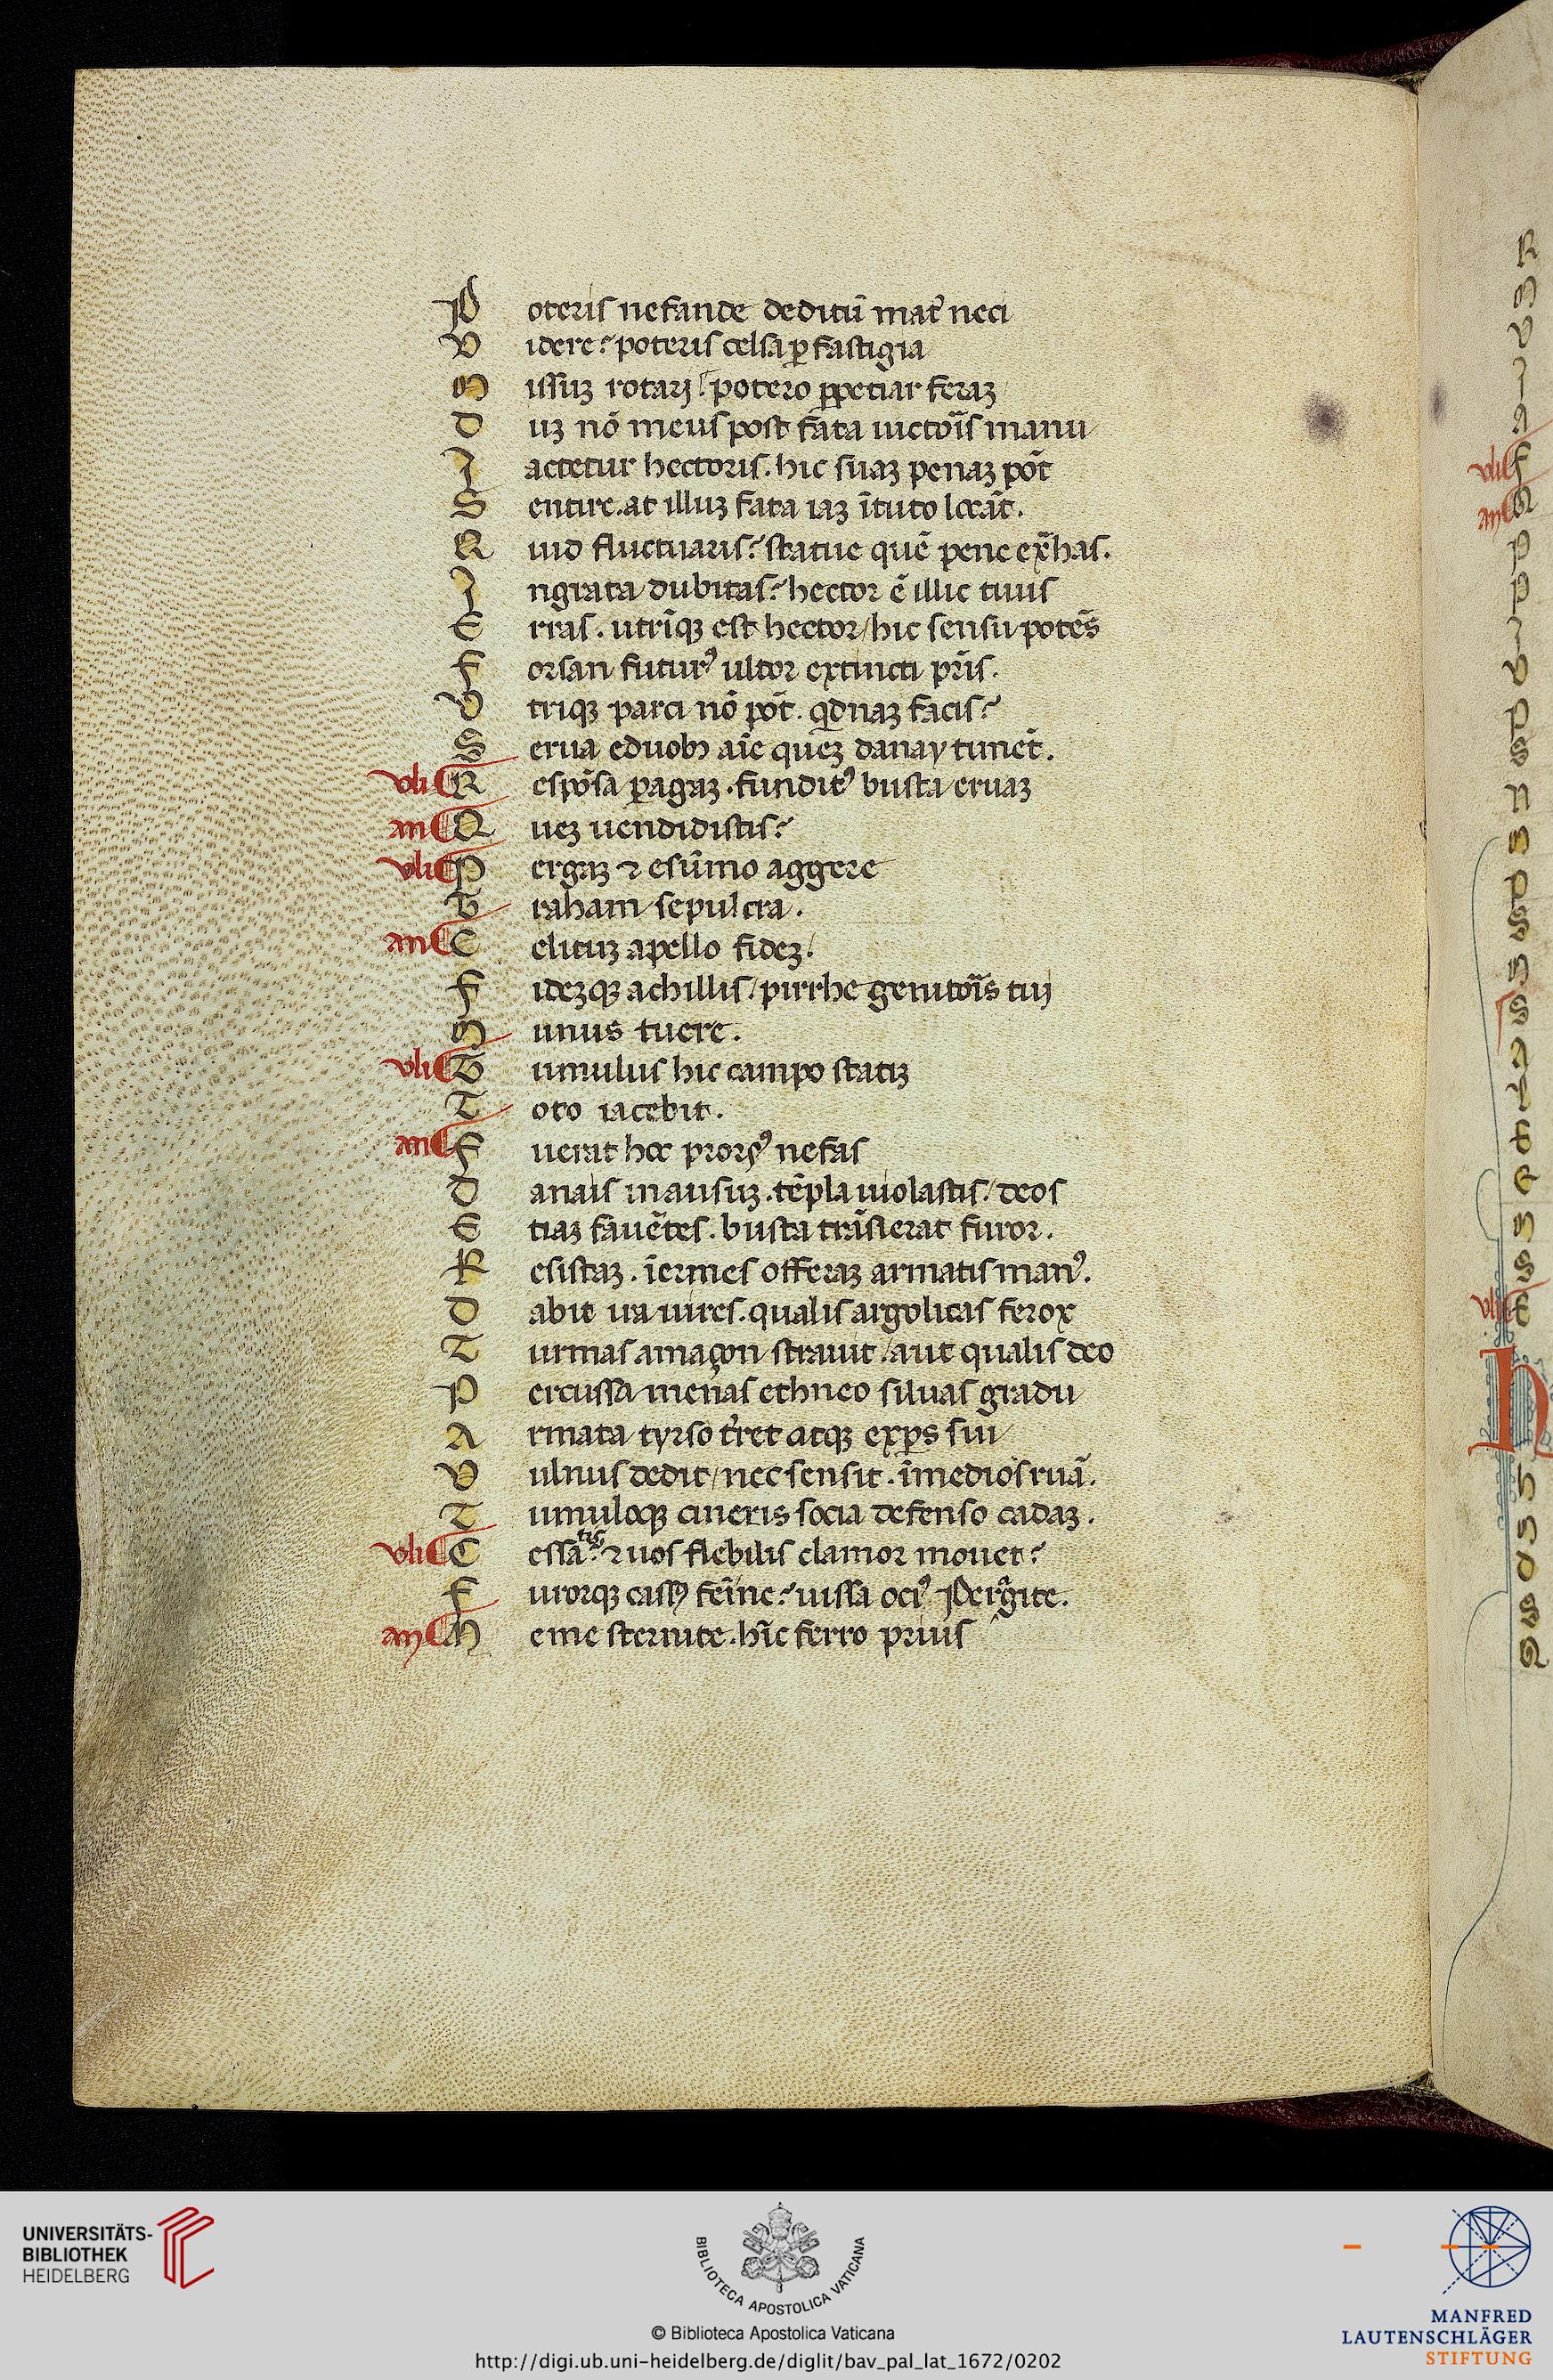 Poteris nefande deditū mat᾽ neci
Videre? poteris celsa ꝑ fastigia
Missuꝫ rotari? potero ꝑpetiar feraꝫ
Duꝫ nō meus post fata uictoīs manu
Iactetur hectoris. hic suaꝫ penaꝫ pōt
Sentire. at illuꝫ fata iaꝫ ītuto locāt.
Quid fluctuaris? statue quē pene ex̄has.
Ingrata dubitas? hector ē illic tuus
Erras. utrīqꝫ est hector/hic sensu potēs
Forsan futurꝰ ultor extincti pr̄is.
Vtriqꝫ parci nō pōt. qdnaꝫ facis?
Serua eduobꝫ aīe queꝫ danay timēt.
vli Respōsa ꝑagaꝫ. funditꝰ busta eruaꝫ
an Queꝫ uendidistis?
vli Pergaꝫ ⁊ esūmo aggere
Traham sepulcra.
an Celituꝫ apello fideꝫ/
Fideꝫqꝫ achillis/pirrhe genitoīs tuj
Munus tuere.
vli Tumulus hic campo statiꝫ
Toto iacebit.
an Fuerat hoc prorsꝰ nefas
Danais inausuꝫ. tēpla uiolastis/deos
Etiaꝫ fauētes. busta trāsierat furor.
Resistaꝫ. īermes offeraꝫ armatis manꝰ.
Dabit ira uires. qualis argolicas ferox
Turmas amaçon strauit/aut qualis deo
Percussa menas ethneo siluas gradu
Armata tyrso t᾽ret atqꝫ exꝑs sui
Vulnus dedit/nec sensit. īmedios ruā.
Tumuloqꝫ cineris socia defenso cadaꝫ.
vli Cessatis? ⁊ uos flebilis clamor mouet?
Furorqꝫ cassꝰ feīne? iussa ociꝰ Pergite.
an Meme sternite. hīc ferro prius
UNIVERSITÄTS-
BIBLIOTHEK
HEIDELBERG
BIBLIOTECA APOSTOLICA VATICANA
© Biblioteca Apostolica Vaticana
http://digi.ub.uni-heidelberg.de/diglit/bav_pal_lat_1672/0202
MANFRED
LAUTENSCHLÄGER
STIFTUNG